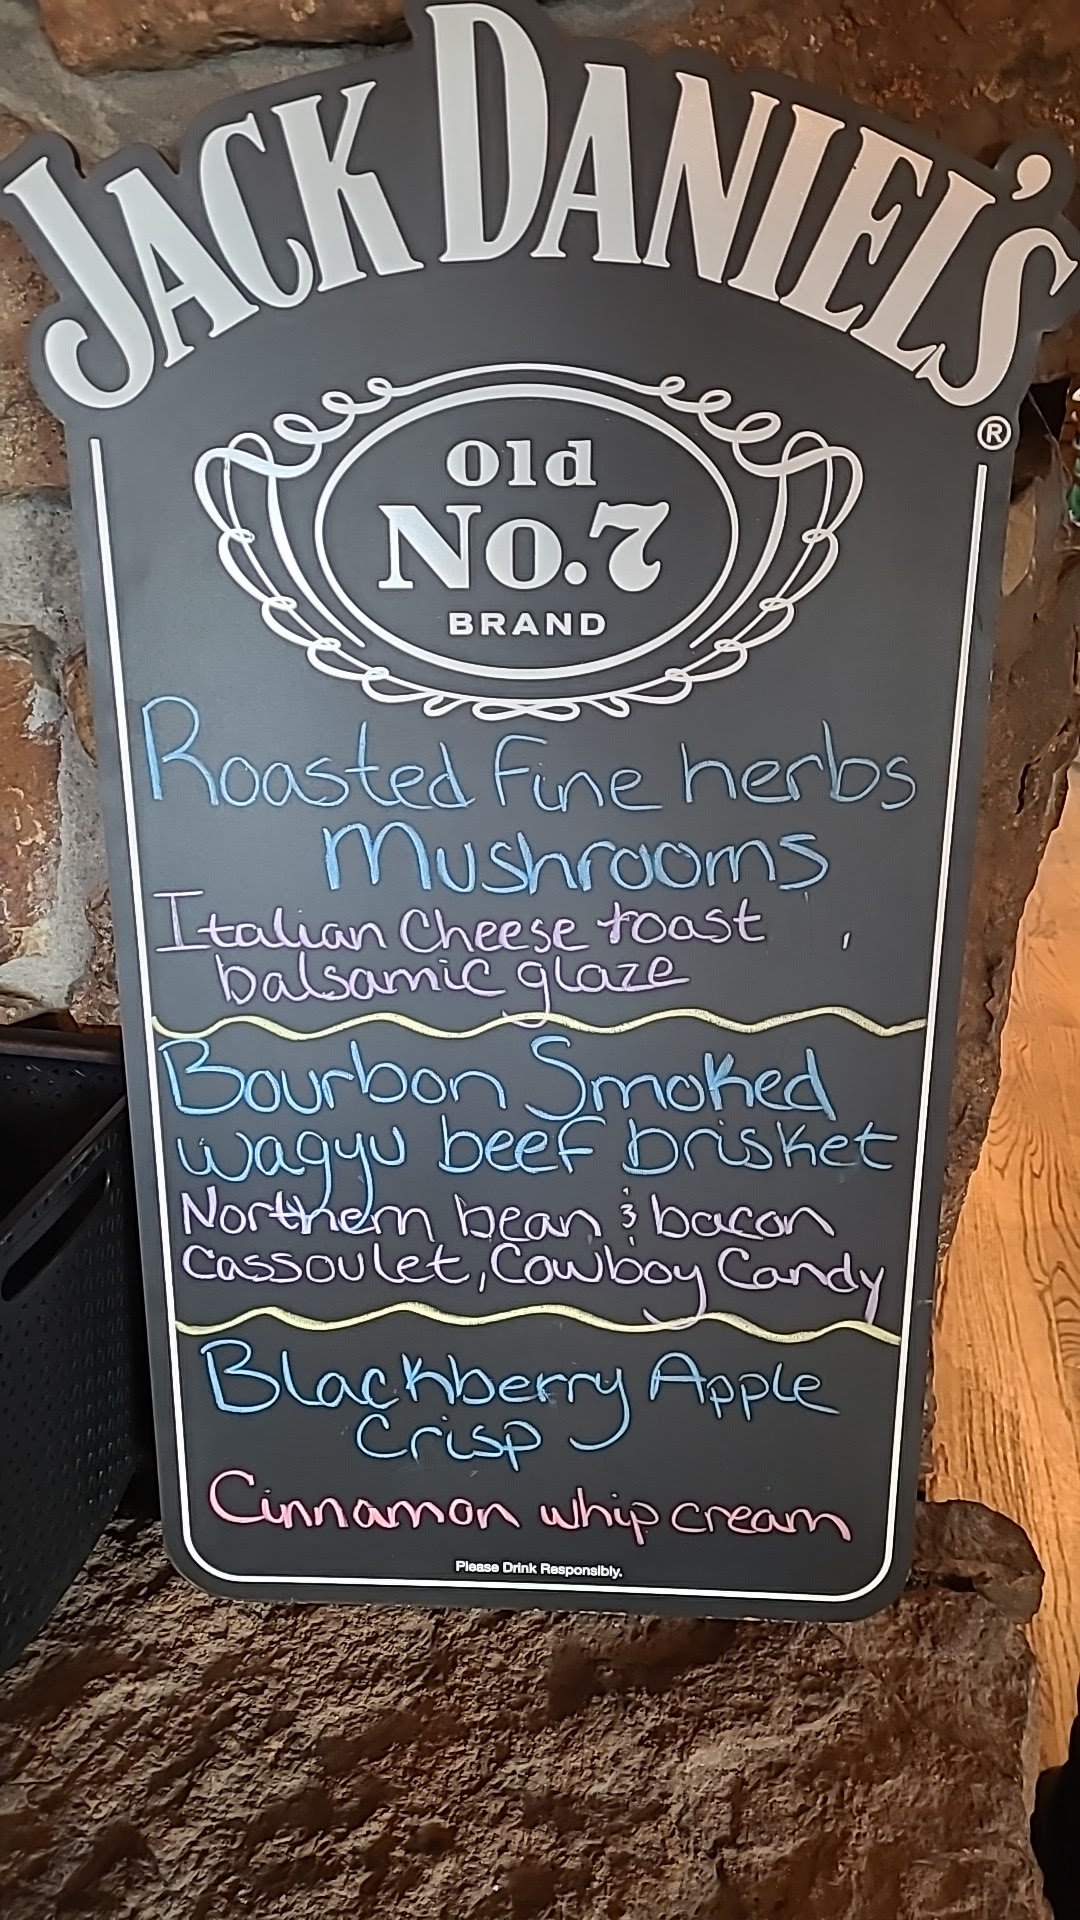 JACK DANIEL'S
®
Old
No.7
BRAND
Roasted Fine herbs
Mushrooms
Italian Cheese toast ,
balsamic glaze
Bourbon Smoked
wagyu beef brisket
Northern bean & bacon
Cassoulet, Cowboy Candy
Blackberry Apple
Crisp
Cinnamon whip cream
Please Drink Responsibly.